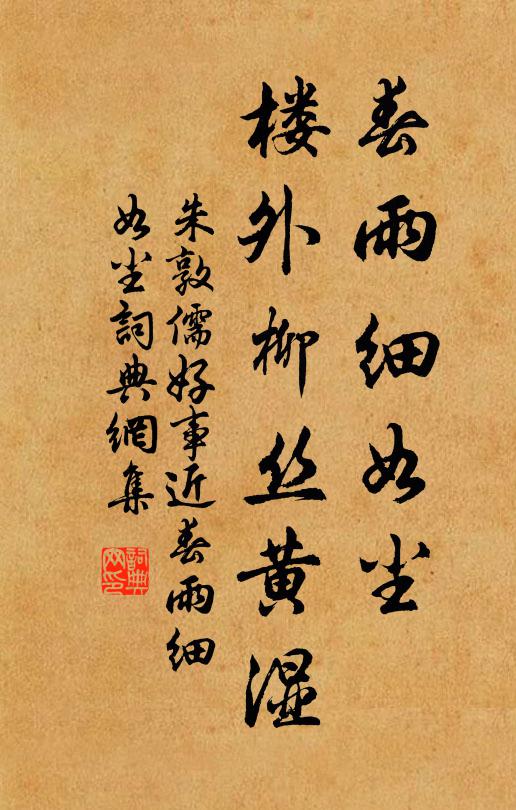 春雨细如尘
楼外柳丝黄湿
朱敦儒好事近春雨细
如尘詞典網集
詞典
网印